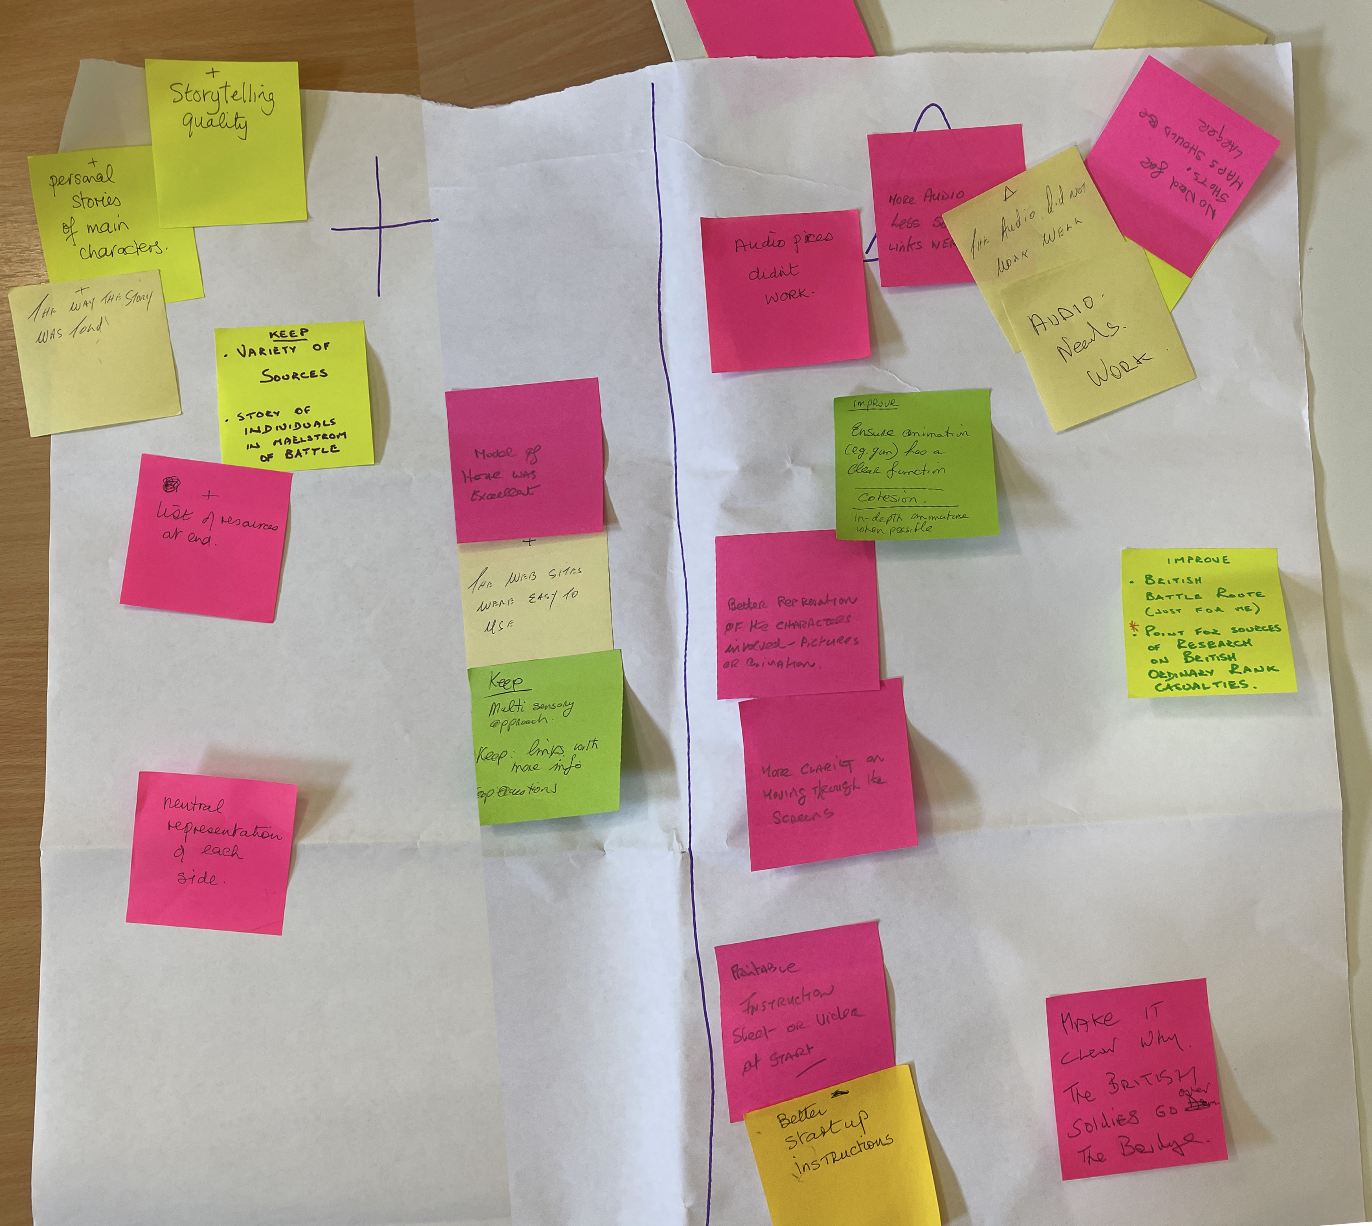 +
Storytelling
quality
+
personal
stories
of main
characters.
+
THE WAY THE STORY
WAS
KEEP
• VARIETY OF
SOURCES
• STORY OF
INDIVIDUALS
IN MAELSTROM
OF BATTLE
+
List of resources
at end.
neutral
representation
of each
side.
Model of
Home was
Excellent
+
THE WEB SITES
WERE EASY TO
USE
Keep
Multi sensory
approach.
Keep: links with
more info
Questions
Audio pices
didn't
WORK.
MORE AUDIO
Less
LINKS
Δ
THE Audio did not
WORK
AUDIO.
Needs.
WORK.
No Need for
SHOTS.
MAPS SHOULD BE
LARGER
IMPROVE
Ensure animation
(eg gun) has a
clear function
Cohesion.
in-depth
when possible
Better
OF the CHARACTERS
involved - PICTURES
OR
MORE CLARITY ON
Moving through the
Screens
IMPROVE
• BRITISH
BATTLE ROUTE
(JUST FOR ME)
* • POINT FOR SOURCES
OF RESEARCH
ON BRITISH
ORDINARY RANK
CASUALTIES.
Printable
INSTRUCTION
Sheet OR Video
at START
Better
start up
instructions
MAKE IT
clear why.
The BRITISH
Soldies GO over
The Bridge.